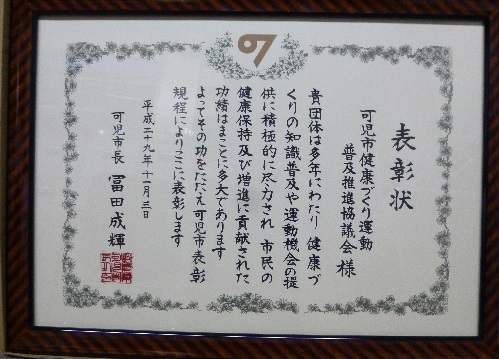 表彰状
可児市健康づくり運動
普及推進協議会 様
貴団体は多年にわたり 健康づ
くりの知識普及や運動機会の提
供に積極的に尽力され 市民の
健康保持及び増進に貢献された
功績はまことに多大であります
よってその功をたたえ可児市表彰
規程によりここに表彰します
平成二十九年十一月三日
可児市長 冨田成輝